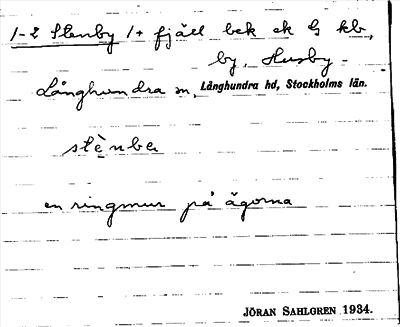 1-2 Stenby 1+ fjäll bek ek G kb,
by, Husby-
Långhundra sn, Långhundra hd, Stockholms län.
stènba
en ringmur på ägorna
JÖRAN SAHLGREN 1934.